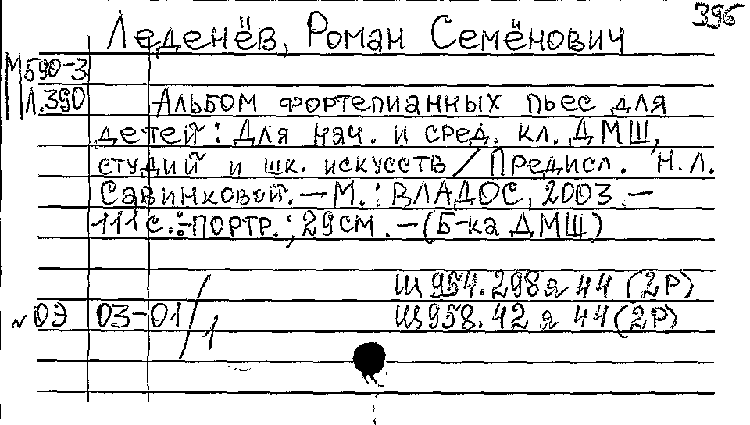 396
Леденёв, Роман Семёнович
М590-3
Л.390 Альбом фортепианных пьес для
детей: Для нач. и сред. кл. ДМШ,
студий и шк. искусств / Предисл. Н.Л.
Савинковой. — М.: ВЛАДОС, 2003. —
111 с.: портр.; 29 см. — (Б-ка ДМШ)
Щ 954.298я 44 (2Р)
03-01/1 Щ 958.42 я 44 (2Р)